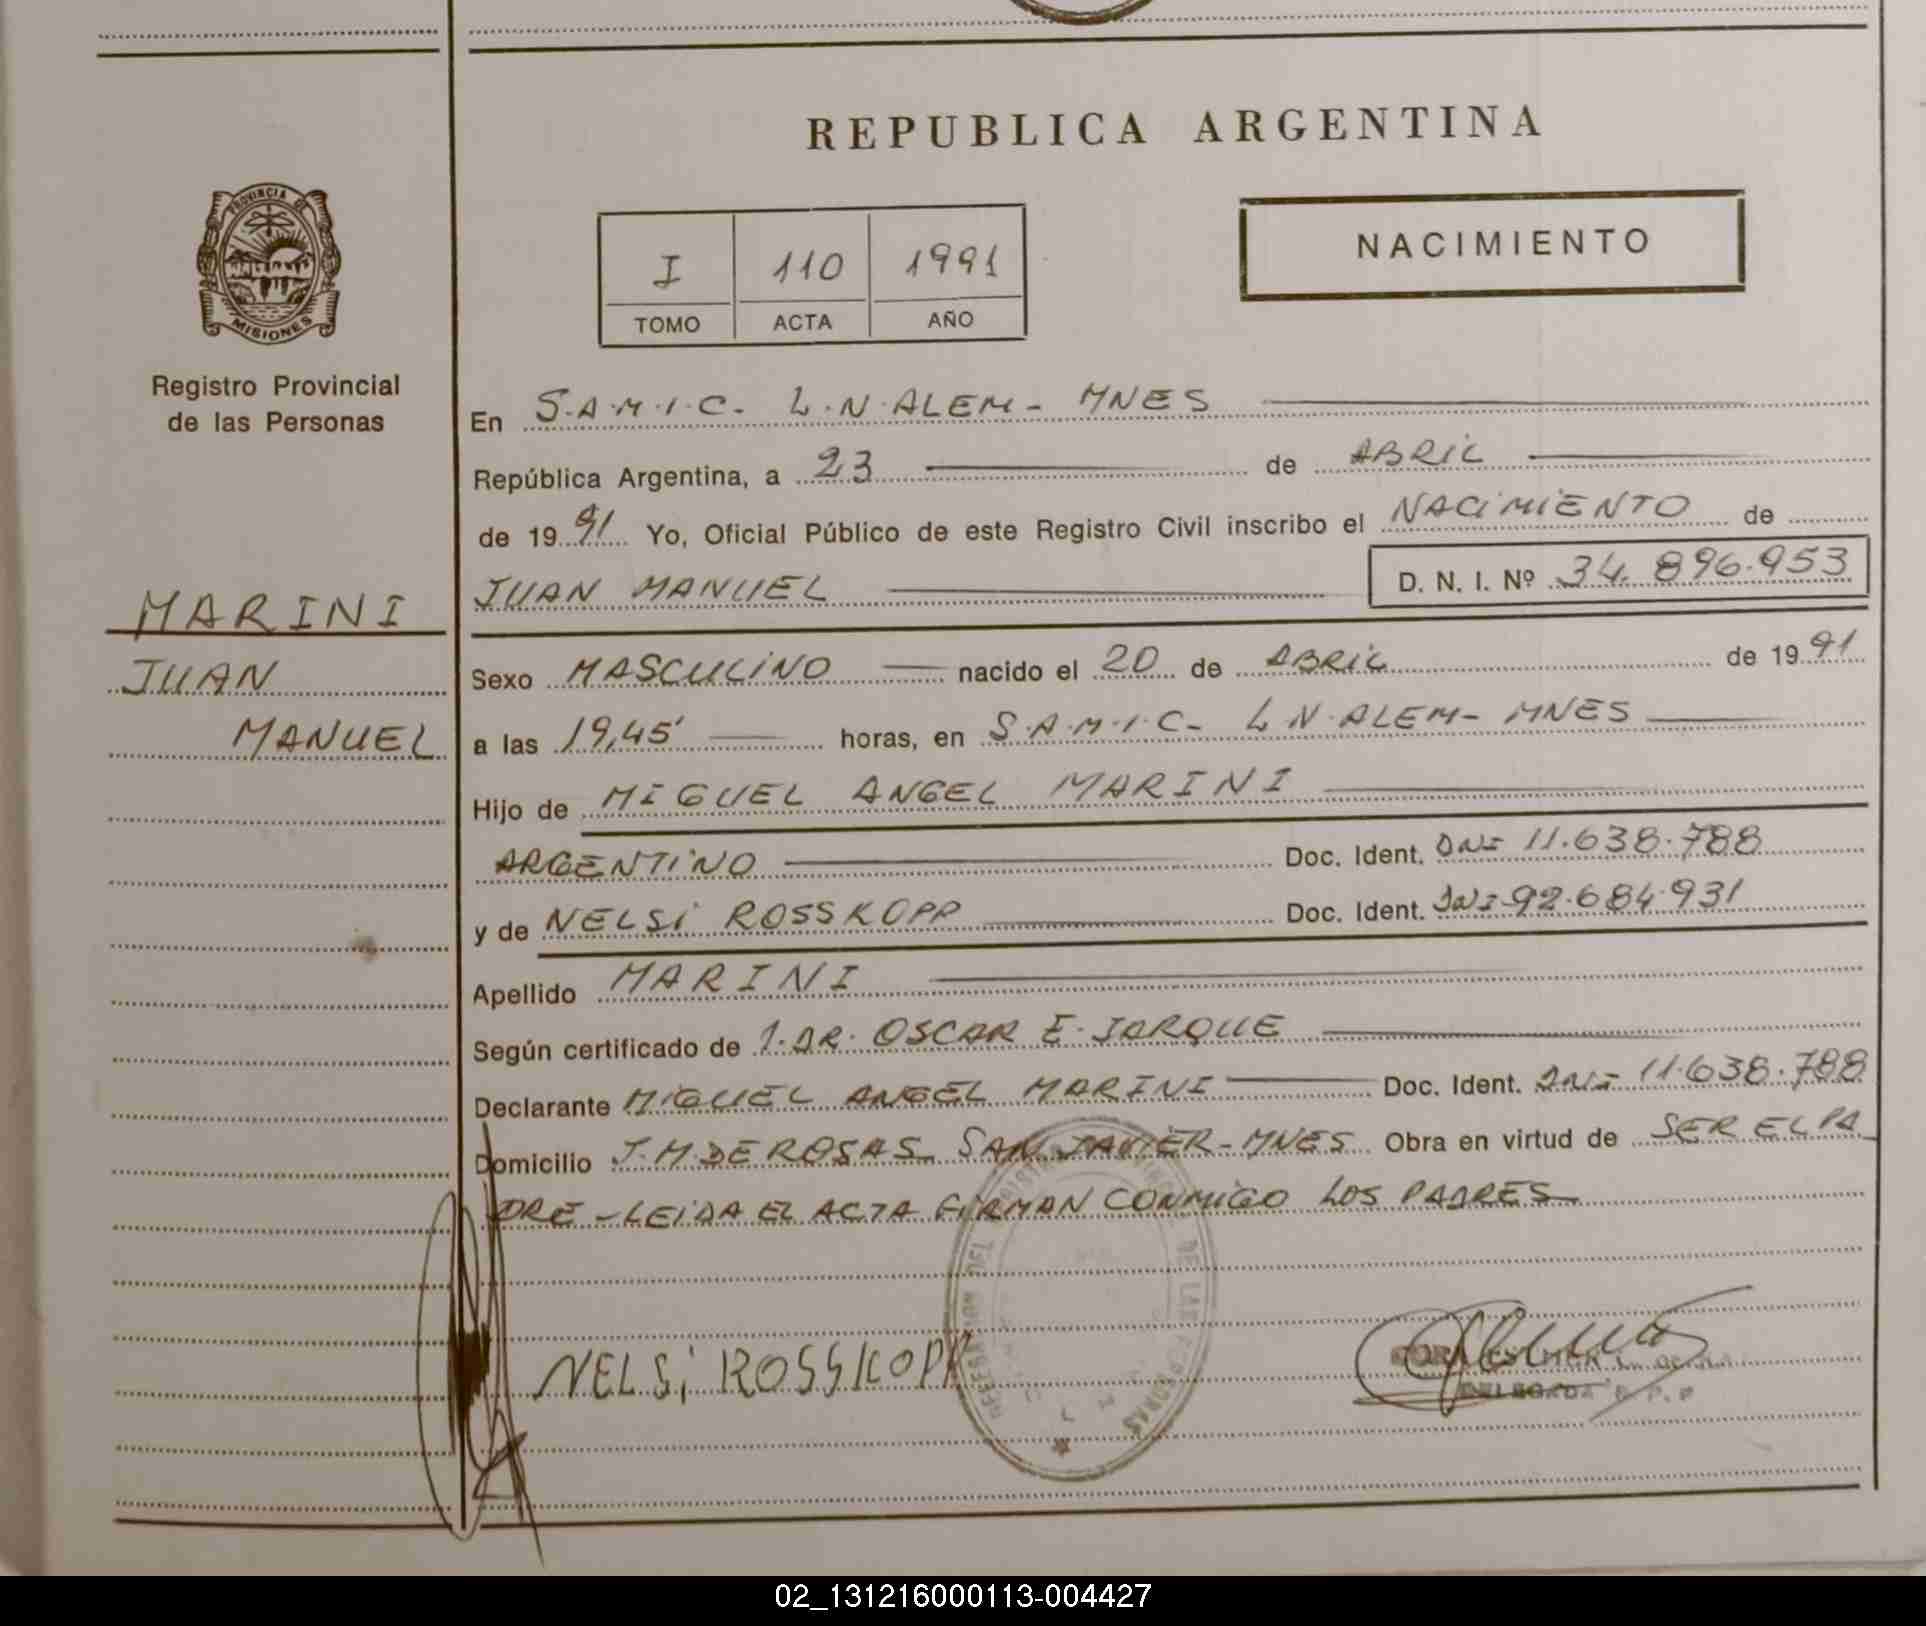 REPUBLICA ARGENTINA
PROVINCIA DE
MISIONES
Registro Provincial
de las Personas
I 110 1991
TOMO ACTA AÑO
NACIMIENTO
MARINI
JUAN
MANUEL
En S.A.M.I.C. L.N.ALEM - MNES
República Argentina, a 23 de ABRIL
de 1991 Yo, Oficial Público de este Registro Civil inscribo el NACIMIENTO de
JUAN MANUEL D. N. I. Nº 34.896.953
Sexo MASCULINO nacido el 20 de ABRIL de 1991
a las 19,45' horas, en S.A.M.I.C - L.N.ALEM - MNES
Hijo de MIGUEL ANGEL MARINI
ARGENTINO Doc. Ident. DNI 11.638.788
y de NELSI ROSSKOPP Doc. Ident. DNI 92.684.931
Apellido MARINI
Según certificado de 1. DR. OSCAR E. JARQUE
Declarante MIGUEL ANGEL MARINI Doc. Ident. DNI 11.638.788
Domicilio J.M.DE ROSAS SAN JAVIER - MNES Obra en virtud de SER EL PA
DRE - LEIDA EL ACTA FIRMAN CONMIGO LOS PADRES
NELSi ROSSKOPP
DE LAS PERSONAS
02_131216000113-004427